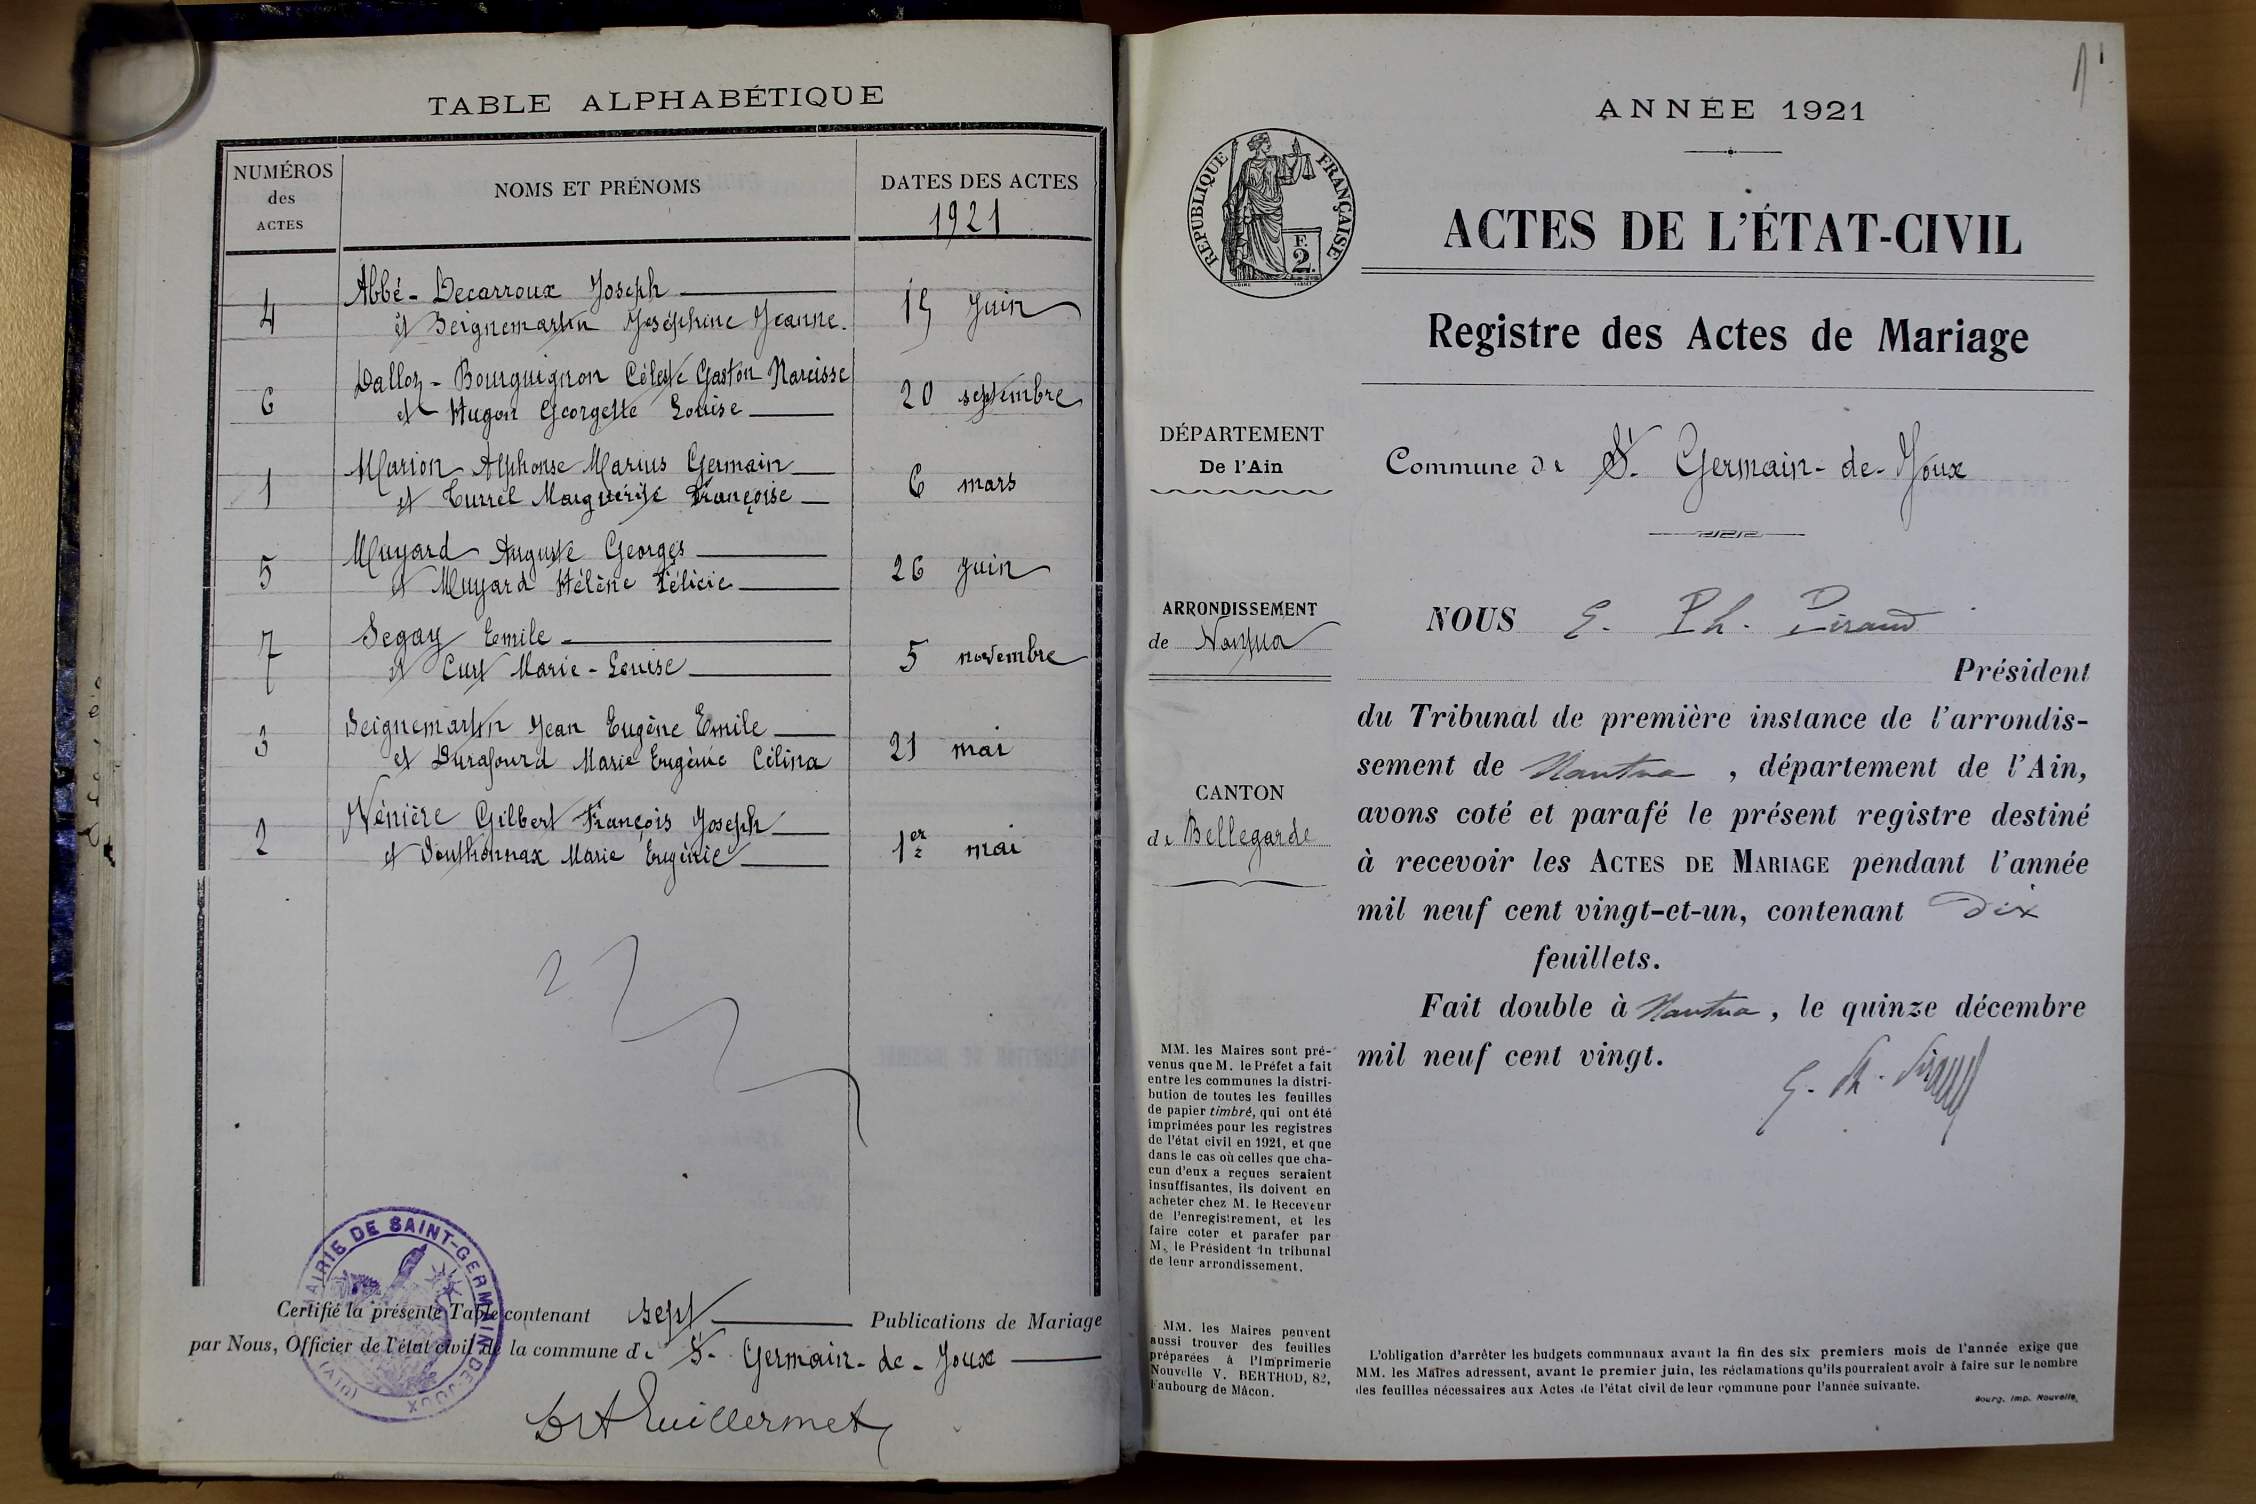 TABLE ALPHABÉTIQUE
NUMÉROS
des
ACTES
NOMS ET PRÉNOMS
DATES DES ACTES
1921
4
Abbé-Decarroux Joseph
et Seignemartin Joséphine Jeanne.
15 juin
6
Dalloz-Bourguignon Céleste Gaston Narcisse
et Hugon Georgette Louise
20 septembre
1
Marion Alphonse Marius Germain
et Turrel Marguerite Françoise
6 mars
5
Muyard Auguste Georges
et Muyard Hélène Félicie
26 juin
7
Segay Emile
et Curt Marie-Louise
5 novembre
3
Seignemartin Jean Eugène Emile
et Durafourd Marie Eugènie Célina
21 mai
2
Vénière Gilbert François Joseph
et Douthonnax Marie Eugènie
1er mai
MAIRIE DE SAINT-GERMAIN-DE-JOUX
(AIN)
Certifié la présente Table contenant sept Publications de Mariage
par Nous, Officier de l'état civil de la commune de St Germain-de-Joux
Guillermet
ANNÉE 1921
RÉPUBLIQUE FRANÇAISE
F.
2.
ACTES DE L'ÉTAT-CIVIL
Registre des Actes de Mariage
DÉPARTEMENT
De l'Ain
Commune de St Germain-de-Joux
ARRONDISSEMENT
de Nantua
CANTON
de Bellegarde
NOUS E. Ph. Piraud
Président
du Tribunal de première instance de l'arrondis-
sement de Nantua, département de l'Ain,
avons coté et parafé le présent registre destiné
à recevoir les ACTES DE MARIAGE pendant l'année
mil neuf cent vingt-et-un, contenant dix
feuillets.
Fait double à Nantua, le quinze décembre
mil neuf cent vingt.
E. Ph. Piraud
MM. les Maires sont pré-
venus que M. le Préfet a fait
entre les communes la distri-
bution de toutes les feuilles
de papier timbré, qui ont été
imprimées pour les registres
de l'état civil en 1921, et que
dans le cas où celles que cha-
cun d'eux a reçues seraient
insuffisantes, ils doivent en
acheter chez M. le Receveur
de l'enregistrement, et les
faire coter et parafer par
M. le Président du tribunal
de leur arrondissement.
MM. les Maires peuvent
aussi trouver des feuilles
préparées à l'Imprimerie
Nouvelle V. BERTHOD, 82,
Faubourg de Mâcon.
L'obligation d'arrêter les budgets communaux avant la fin des six premiers mois de l'année exige que
MM. les Maires adressent, avant le premier juin, les réclamations qu'ils pourraient avoir à faire sur le nombre
des feuilles nécessaires aux Actes de l'état civil de leur commune pour l'année suivante.
Bourg. Imp. Nouvelle.